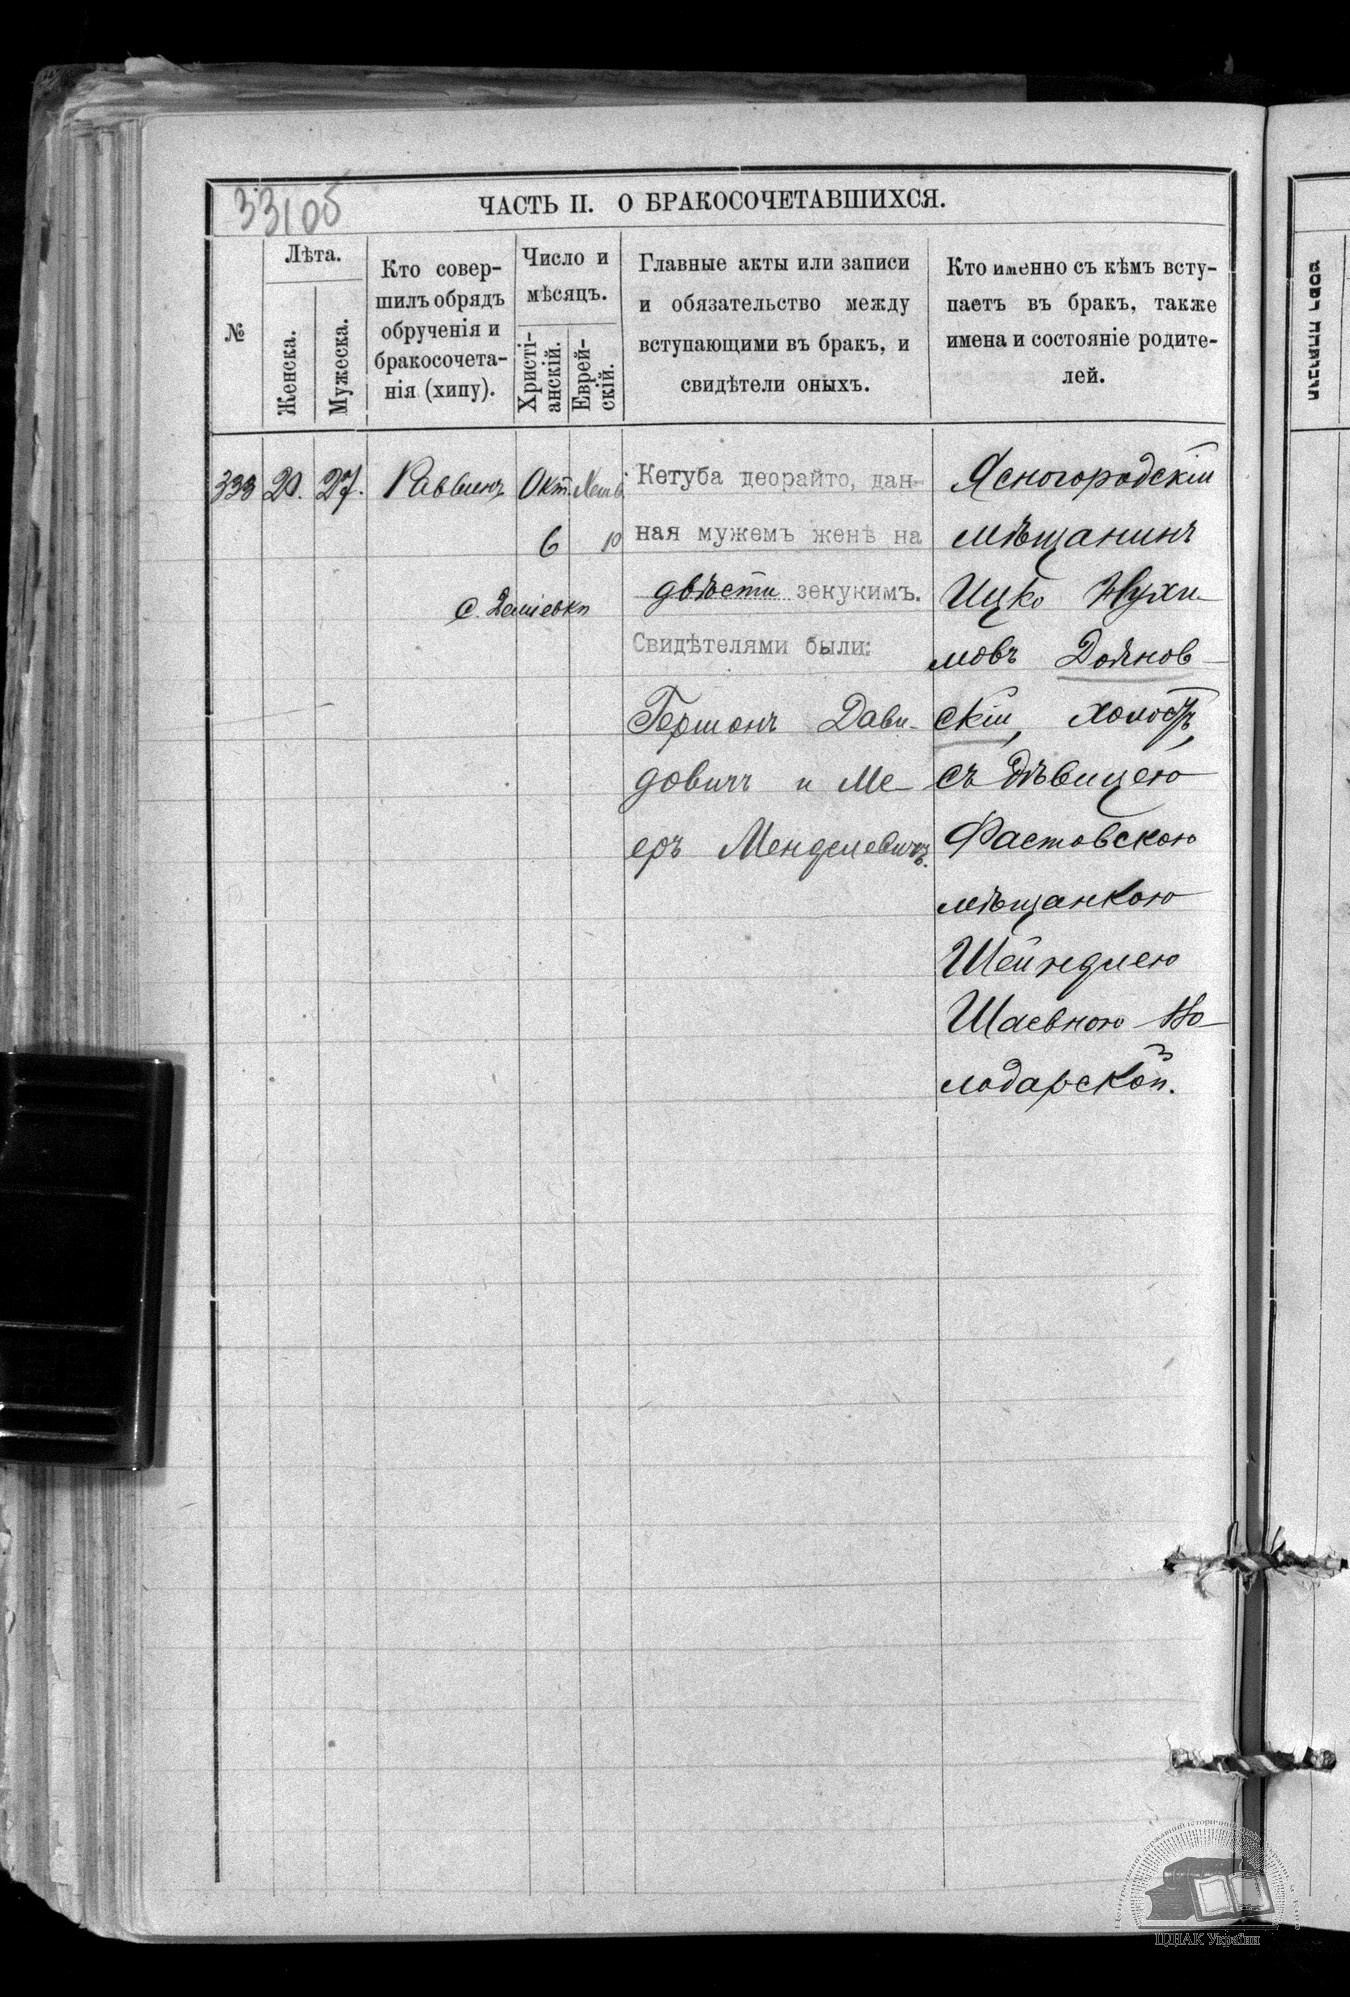 33105
ЧАСТЬ II. О БРАКОСОЧЕТАВШИХСЯ.
№
Лѣта.
Женска.
Мужеска.
Кто совер-
шилъ обрядъ
обрученія и
бракосочета-
нія (хипу).
Число и
мѣсяцъ.
Христі-
анскій.
Еврей-
скій.
Главные акты или записи
и обязательство между
вступающими въ бракъ, и
свидѣтели оныхъ.
Кто именно съ кѣмъ всту-
паетъ въ бракъ, также
имена и состояніе родите-
лей.
333 20. 27. Раввинъ Окт.
6 10
с.
Кетуба деорайто, дан-
ная мужемъ женѣ на
двѣсти зекукимъ.
Свидѣтелями были:
Гершонъ Дави-
довичъ и Ме-
еръ Менделевичъ.
Ясногородскій
мѣщанинъ
Ицко Нухи-
мовъ Дойнов-
скій, холостъ,
съ дѣвицею
Фастовскою
мѣщанкою
Шейндлею
Шаевною Во-
лодарской.
ЦДІАК України